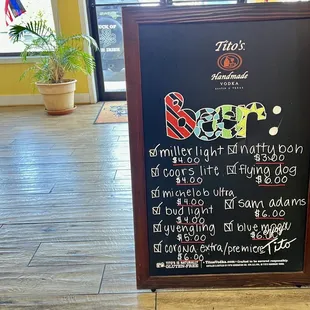 Tito's
Handmade
VODKA
AUSTIN * TEXAS
Beer:
miller light $4.00
natty boh $3.00
coors lite $4.00
flying dog $6.00
michelob ultra $4.00
bud light $4.00
sam adams $6.00
yuengling $5.00
blue moon
corona extra/premier $6.00
Tito
GLUTEN-FREE